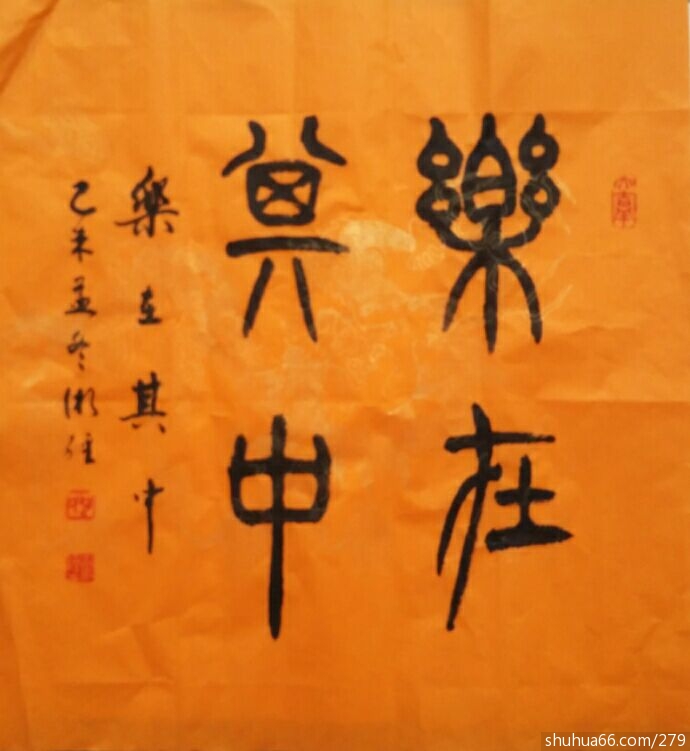 樂在
其中
樂在其中
己未孟冬
shuhua66.com/279